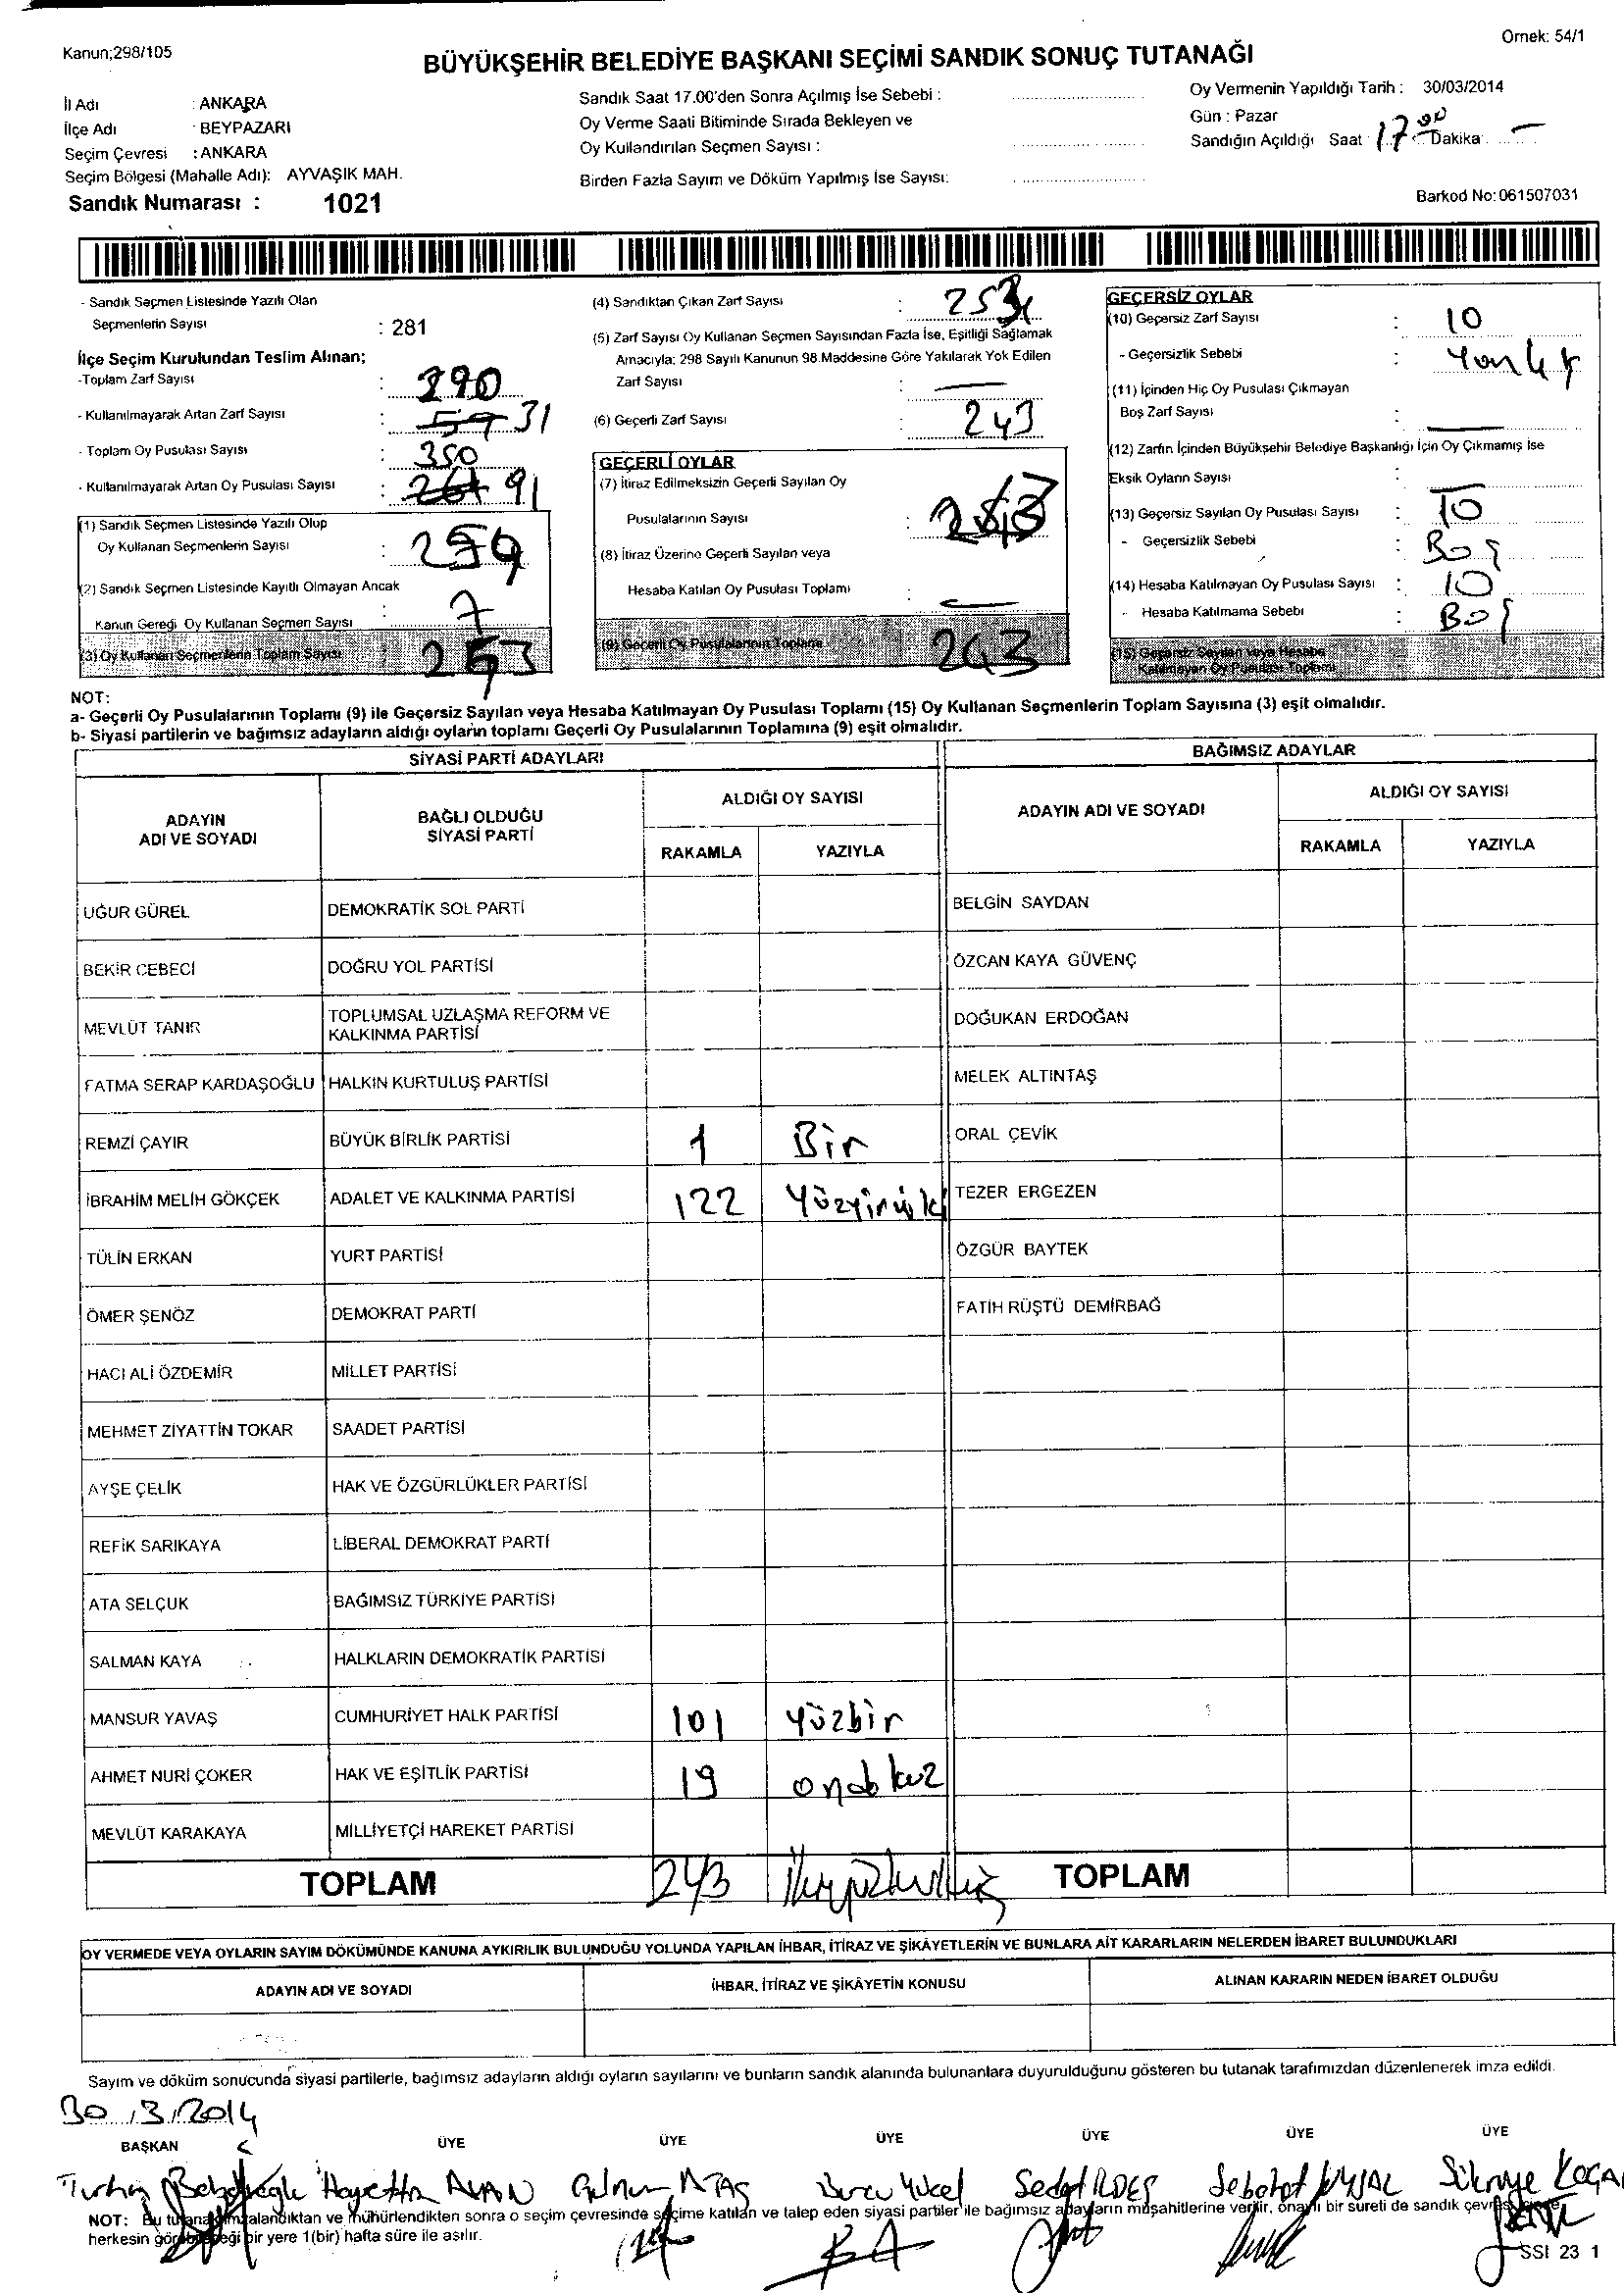 Kanun;298/105
Örnek: 54/1
BÜYÜKŞEHİR BELEDİYE BAŞKANI SEÇİMİ SANDIK SONUÇ TUTANAĞI
İl Adı : ANKARA
İlçe Adı : BEYPAZARI
Seçim Çevresi : ANKARA
Seçim Bölgesi (Mahalle Adı): AYVAŞIK MAH.
Sandık Numarası : 1021
Sandık Saat 17.00'den Sonra Açılmış İse Sebebi :
Oy Verme Saati Bitiminde Sırada Bekleyen ve
Oy Kullandırılan Seçmen Sayısı :
Birden Fazla Sayım ve Döküm Yapılmış İse Sayısı:
Oy Vermenin Yapıldığı Tarih : 30/03/2014
Gün : Pazar
Sandığın Açıldığı Saat 17 00 Dakika —
Barkod No:061507031
- Sandık Seçmen Listesinde Yazılı Olan
Seçmenlerin Sayısı : 281
İlçe Seçim Kurulundan Teslim Alınan;
-Toplam Zarf Sayısı : 290
- Kullanılmayarak Artan Zarf Sayısı : 31
- Toplam Oy Pusulası Sayısı : 350
- Kullanılmayarak Artan Oy Pusulası Sayısı : 91
(1) Sandık Seçmen Listesinde Yazılı Olup
Oy Kullanan Seçmenlerin Sayısı :
(2) Sandık Seçmen Listesinde Kayıtlı Olmayan Ancak
Kanun Gereği Oy Kullanan Seçmen Sayısı : 7
(3) Oy Kullanan Seçmenlerin Toplam Sayısı 253
(4) Sandıktan Çıkan Zarf Sayısı : 253
(5) Zarf Sayısı Oy Kullanan Seçmen Sayısından Fazla İse, Eşitliği Sağlamak
Amacıyla; 298 Sayılı Kanunun 98.Maddesine Göre Yakılarak Yok Edilen
Zarf Sayısı : —
(6) Geçerli Zarf Sayısı : 243
GEÇERLİ OYLAR
(7) İtiraz Edilmeksizin Geçerli Sayılan Oy
Pusulalarının Sayısı : 243
(8) İtiraz Üzerine Geçerli Sayılan veya
Hesaba Katılan Oy Pusulası Toplamı : —
(9) Geçerli Oy Pusulalarının Toplamı 243
GEÇERSİZ OYLAR
(10) Geçersiz Zarf Sayısı : 10
- Geçersizlik Sebebi :
(11) İçinden Hiç Oy Pusulası Çıkmayan
Boş Zarf Sayısı : —
(12) Zarfın İçinden Büyükşehir Belediye Başkanlığı İçin Oy Çıkmamış İse
Eksik Oyların Sayısı : —
(13) Geçersiz Sayılan Oy Pusulası Sayısı : 10
- Geçersizlik Sebebi : Boş
(14) Hesaba Katılmayan Oy Pusulası Sayısı : 10
- Hesaba Katılmama Sebebi : Boş
(15) Geçersiz Sayılan veya Hesaba
Katılmayan Oy Pusulası Toplamı
NOT:
a- Geçerli Oy Pusulalarının Toplamı (9) ile Geçersiz Sayılan veya Hesaba Katılmayan Oy Pusulası Toplamı (15) Oy Kullanan Seçmenlerin Toplam Sayısına (3) eşit olmalıdır.
b- Siyasi partilerin ve bağımsız adayların aldığı oyların toplamı Geçerli Oy Pusulalarının Toplamına (9) eşit olmalıdır.
SİYASİ PARTİ ADAYLARI
ADAYIN ADI VE SOYADI
BAĞLI OLDUĞU SİYASİ PARTİ
ALDIĞI OY SAYISI
RAKAMLA YAZIYLA
UĞUR GÜREL DEMOKRATİK SOL PARTİ
BEKİR CEBECİ DOĞRU YOL PARTİSİ
MEVLÜT TANIR TOPLUMSAL UZLAŞMA REFORM VE KALKINMA PARTİSİ
FATMA SERAP KARDAŞOĞLU HALKIN KURTULUŞ PARTİSİ
REMZİ ÇAYIR BÜYÜK BİRLİK PARTİSİ 1 Bir
İBRAHİM MELİH GÖKÇEK ADALET VE KALKINMA PARTİSİ 122
TÜLİN ERKAN YURT PARTİSİ
ÖMER ŞENÖZ DEMOKRAT PARTİ
HACI ALİ ÖZDEMİR MİLLET PARTİSİ
MEHMET ZİYATTİN TOKAR SAADET PARTİSİ
AYŞE ÇELİK HAK VE ÖZGÜRLÜKLER PARTİSİ
REFİK SARIKAYA LİBERAL DEMOKRAT PARTİ
ATA SELÇUK BAĞIMSIZ TÜRKİYE PARTİSİ
SALMAN KAYA HALKLARIN DEMOKRATİK PARTİSİ
MANSUR YAVAŞ CUMHURİYET HALK PARTİSİ 101 Yüzbir
AHMET NURİ ÇOKER HAK VE EŞİTLİK PARTİSİ 19 ondokuz
MEVLÜT KARAKAYA MİLLİYETÇİ HAREKET PARTİSİ
TOPLAM 243
BAĞIMSIZ ADAYLAR
ADAYIN ADI VE SOYADI
ALDIĞI OY SAYISI
RAKAMLA YAZIYLA
BELGİN SAYDAN
ÖZCAN KAYA GÜVENÇ
DOĞUKAN ERDOĞAN
MELEK ALTINTAŞ
ORAL ÇEVİK
TEZER ERGEZEN
ÖZGÜR BAYTEK
FATİH RÜŞTÜ DEMİRBAĞ
TOPLAM
OY VERMEDE VEYA OYLARIN SAYIM DÖKÜMÜNDE KANUNA AYKIRILIK BULUNDUĞU YOLUNDA YAPILAN İHBAR, İTİRAZ VE ŞİKÂYETLERİN VE BUNLARA AİT KARARLARIN NELERDEN İBARET BULUNDUKLARI
ADAYIN ADI VE SOYADI
İHBAR, İTİRAZ VE ŞİKÂYETİN KONUSU
ALINAN KARARIN NEDEN İBARET OLDUĞU
Sayım ve döküm sonucunda siyasi partilerle, bağımsız adayların aldığı oyların sayılarını ve bunların sandık alanında bulunanlara duyurulduğunu gösteren bu tutanak tarafımızdan düzenlenerek imza edildi.
30.3.2014
BAŞKAN ÜYE ÜYE ÜYE ÜYE ÜYE ÜYE
Burcu Yücel
NOT: Bu tutanak imzalandıktan ve mühürlendikten sonra o seçim çevresinde seçime katılan ve talep eden siyasi partiler ile bağımsız adayların müşahitlerine verilir, onaylı bir sureti de sandık çevresinde
herkesin görebileceği bir yere 1(bir) hafta süre ile asılır.
SSI 23 1